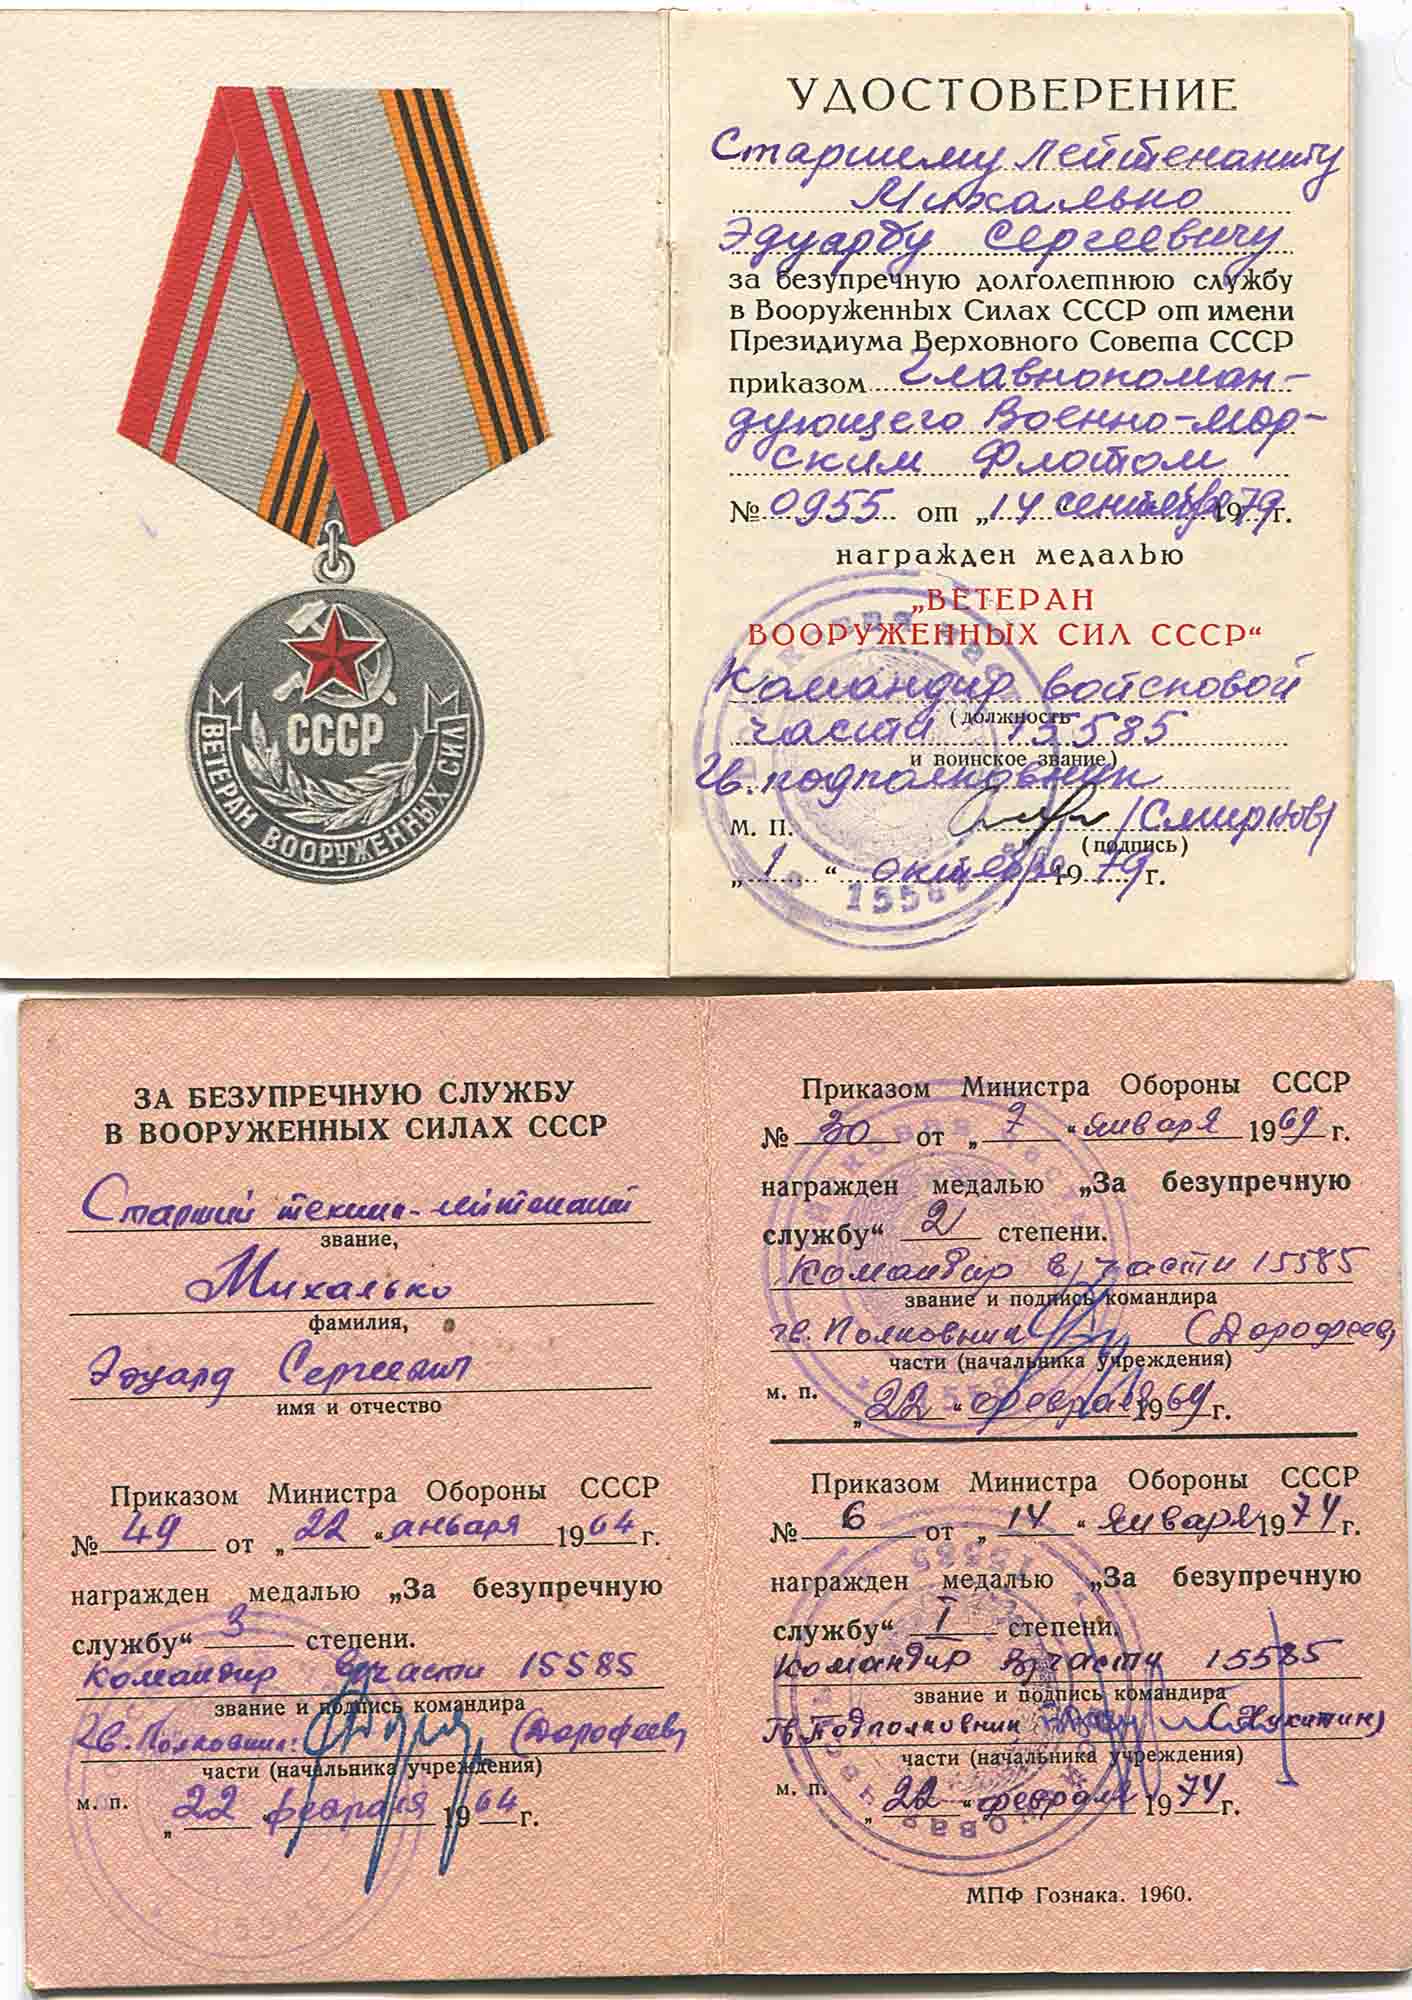 СССР
ВЕТЕРАН ВООРУЖЕННЫХ СИЛ
УДОСТОВЕРЕНИЕ
Старшему лейтенанту
Михалько
Эдуарду Сергеевичу
за безупречную долголетнюю службу
в Вооруженных Силах СССР от имени
Президиума Верховного Совета СССР
приказом Главнокоман-
дующего Военно-Мор-
ским Флотом
№ 0955 от „14“ сентября 1979 г.
награжден медалью
„ВЕТЕРАН
ВООРУЖЕННЫХ СИЛ СССР“
Командир войсковой
(должность
части 15585
и воинское звание)
Гв. подполковник
м. п. /Смирнов/
(подпись)
„1“ октября 1979 г.
ЗА БЕЗУПРЕЧНУЮ СЛУЖБУ
В ВООРУЖЕННЫХ СИЛАХ СССР
Старший техник-лейтенант
звание,
Михалько
фамилия,
Эдуард Сергеевич
имя и отчество
Приказом Министра Обороны СССР
№ 49 от „22“ января 1964 г.
награжден медалью „За безупречную
службу“ 3 степени.
Командир в/части 15585
звание и подпись командира
Гв. Полковник (Дорофеев)
части (начальника учреждения)
м. п.
„22“ февраля 1964 г.
Приказом Министра Обороны СССР
№ 30 от „7“ января 1969 г.
награжден медалью „За безупречную
службу“ 2 степени.
Командир в/части 15585
звание и подпись командира
гв. Полковник (Дорофеев)
части (начальника учреждения)
м. п.
„22“ февраля 1969 г.
Приказом Министра Обороны СССР
№ 6 от „14“ января 1974 г.
награжден медалью „За безупречную
службу“ I степени.
Командир в/части 15585
звание и подпись командира
Гв. Подполковник (Никитин)
части (начальника учреждения)
м. п.
„22“ февраля 1974 г.
МПФ Гознака. 1960.